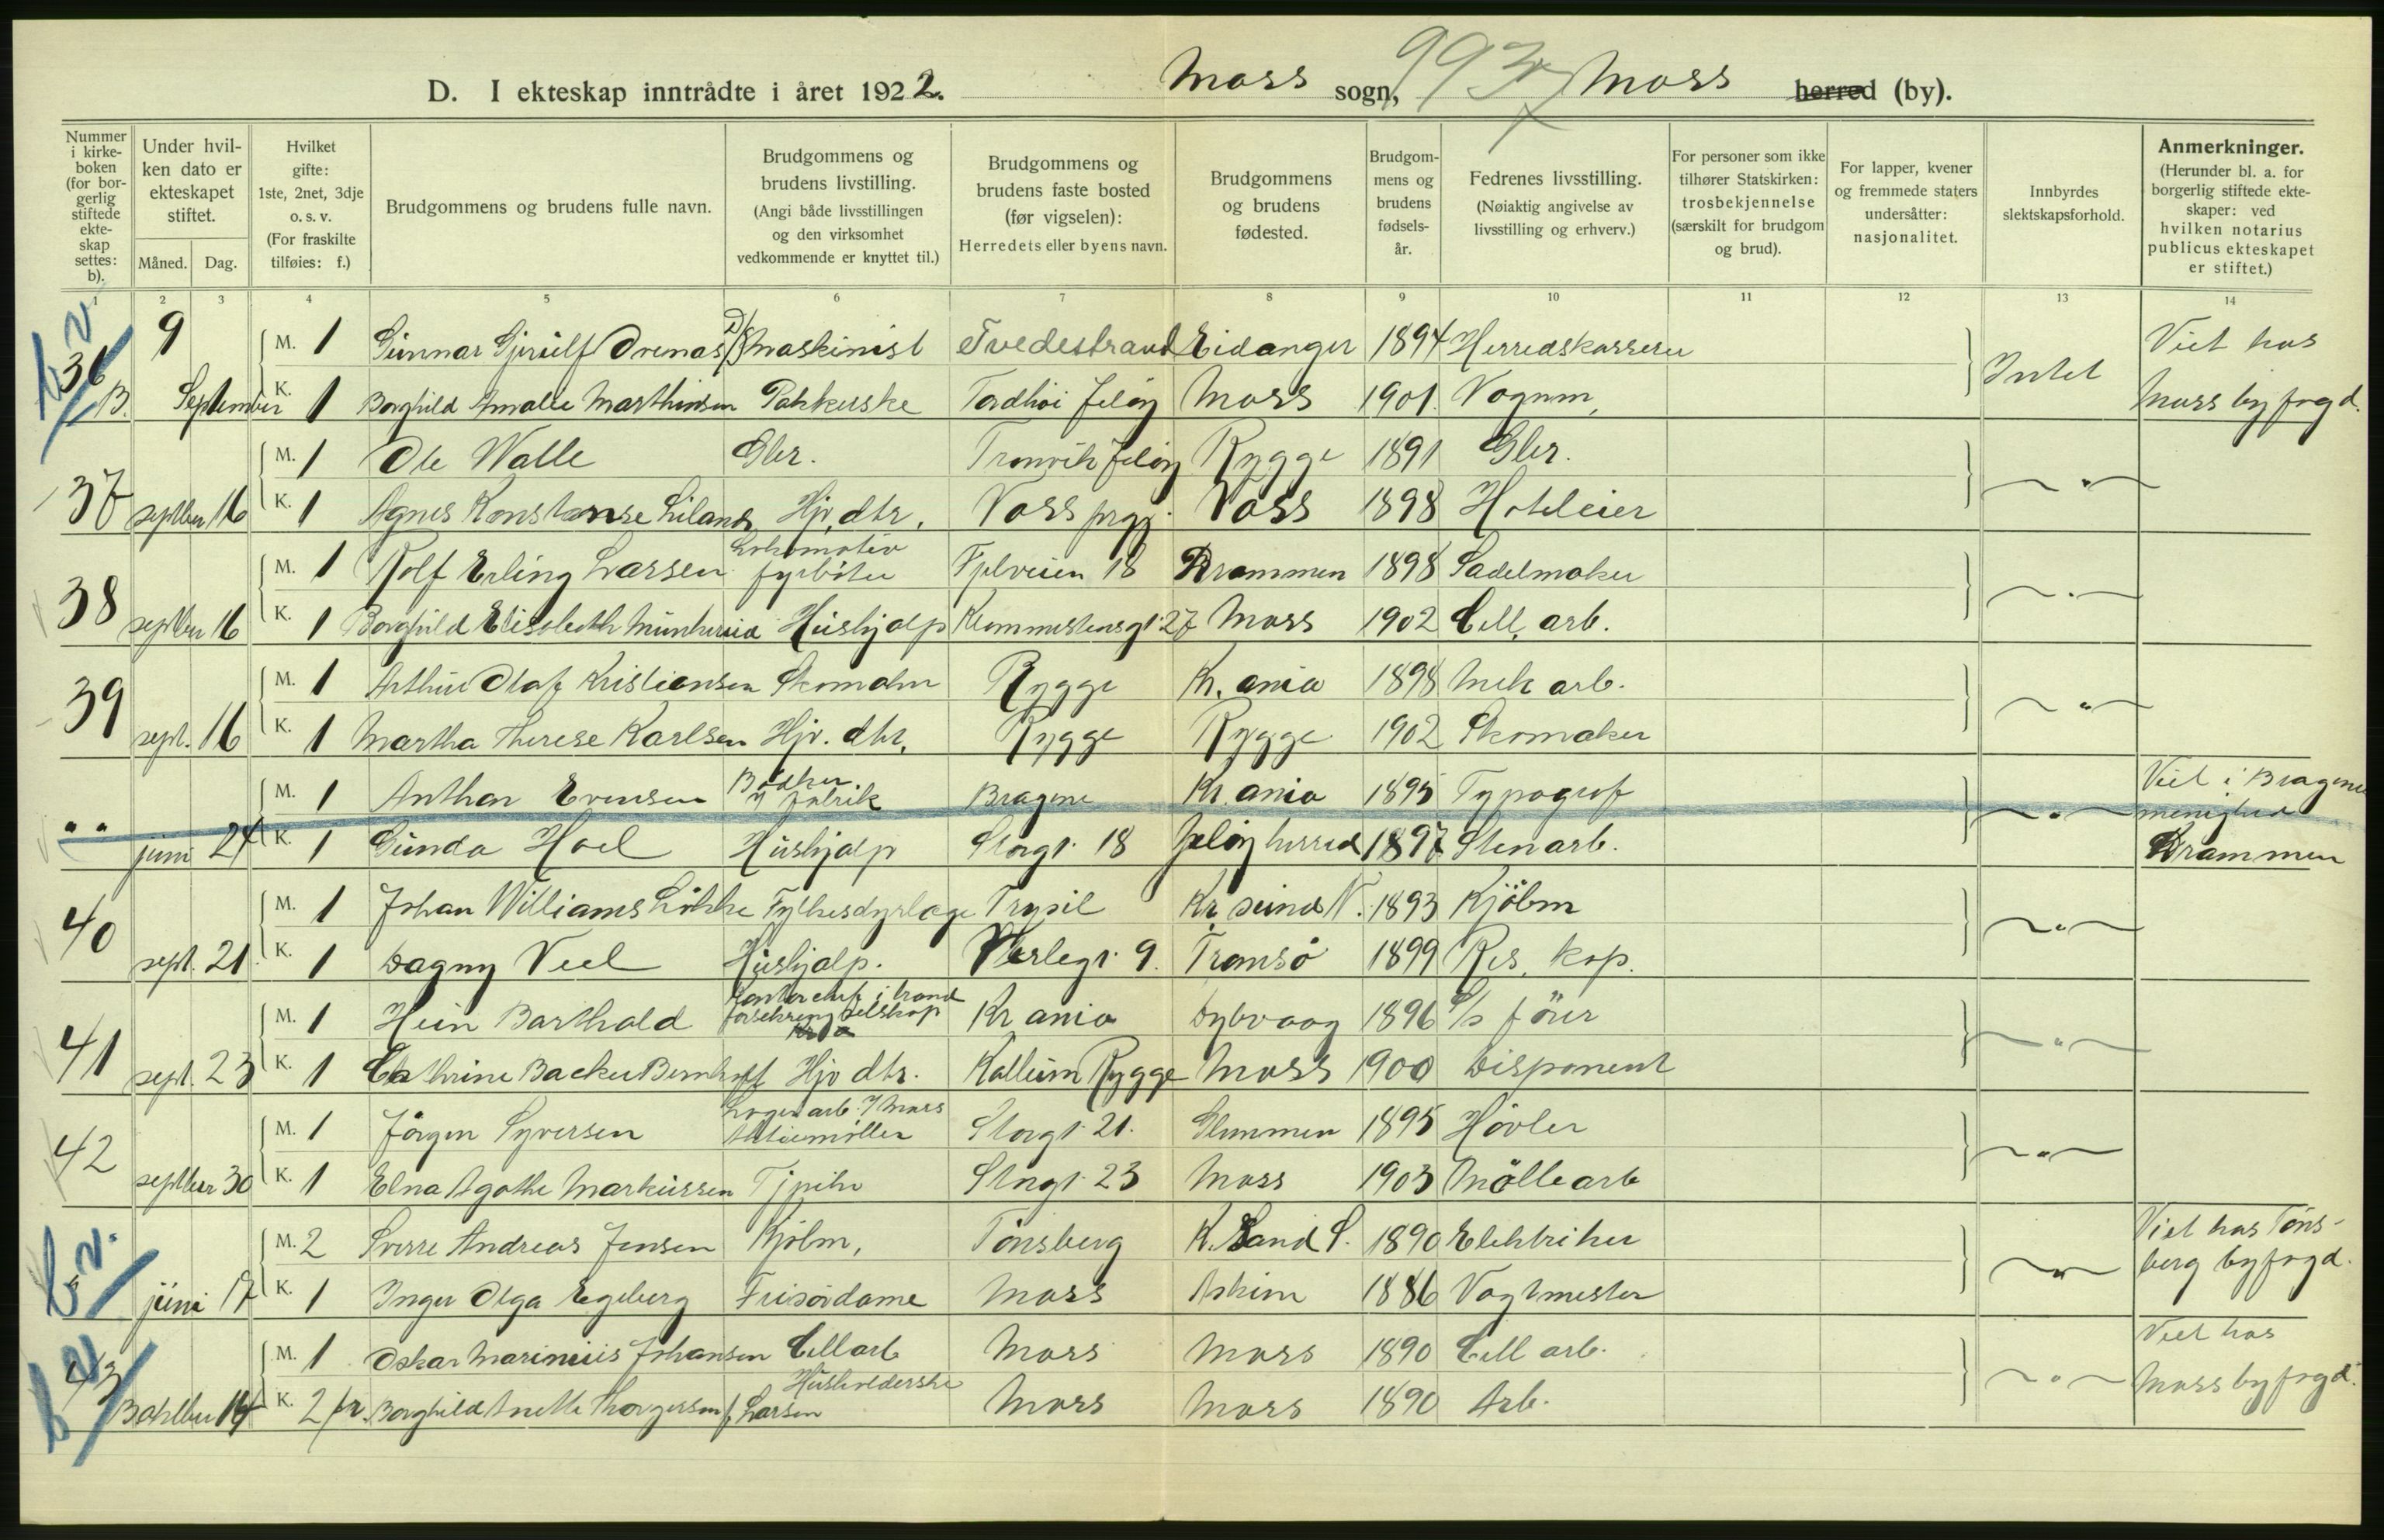 D. I ekteskap inntrådte i året 1922. Moss sogn, 993 Moss herred (by).
Nummer i kirkeboken (for borgerlig stiftede ekteskap settes: b).
Under hvilken dato er ekteskapet stiftet.
Måned. Dag.
Hvilket gifte: 1ste, 2net, 3dje o. s. v. (For fraskilte tilføies: f.)
Brudgommens og brudens fulle navn.
Brudgommens og brudens livstilling. (Angi både livsstillingen og den virksomhet vedkommende er knyttet til.)
Brudgommens og brudens faste bosted (før vigselen): Herredets eller byens navn.
Brudgommens og brudens fødested.
Brudgommens og brudens fødselsår.
Fedrenes livsstilling. (Nøiaktig angivelse av livsstilling og erhverv.)
For personer som ikke tilhører Statskirken: trosbekjennelse (særskilt for brudgom og brud).
For lapper, kvener og fremmede staters undersåtter: nasjonalitet.
Innbyrdes slektskapsforhold.
Anmerkninger. (Herunder bl. a. for borgerlig stiftede ekteskaper: ved hvilken notarius publicus ekteskapet er stiftet.)
1 2 3 4 5 6 7 8 9 10 11 12 13 14
36 9 M. 1 Gunnar Gjerulf Orenas D/S maskinist Tvedestrand Eidanger 1894 Herredskasserer Intet Viet hos
B. September K. 1 Borghild Amalie Marthinsen Pakkerske Tordhöi Jelöy Moss 1901 Vognm, Moss byfogd.
M. 1 Ole Walle Gbr. Tronvik Jelöy Rygge 1891 Gbr. "
37 septber 16 K. 1 Agnes Konstanse Liland Hjv. dtr. Voss prgj. Voss 1898 Hoteleier
38 M. 1 Rolf Erling Larsen Lokomotiv fyrböter Fjelveien 18 Drammen 1898 Sadelmaker "
septber 16 K. 1 Borghild Elisabeth Hushjælp 27 Moss 1902 Cell. arb.
39 M. 1 Arthur Olaf Kristiansen Skomaker Rygge Kr. ania 1898 Mek arb. "
sept. 16 K. 1 Martha Therese Karlsen Hjv. dtr. Rygge Rygge 1902 Skomaker
M. 1 Anthon Evensen Bödker fabrik Bragene Kr. ania 1895 Typograf " Viet i Bragene
" " juni 24 K. 1 Gunda Hoel Hushjælp Storgt. 18 Jelöy herred 1897 Stenarb. menighed Drammen
40 M. 1 Johan Williams Lökke Fylkesdyrlæge Trysil Kr. sund N. 1893 Kjöbm "
sept. 21. K. 1 Dagny Veel Hushjælp. Verlegt. 9. Tromsö 1899 Res. kap.
M. 1 Hein Barthold Kontorchef i brand forsikringselskap Kr ania Dybvaag 1896 S/s förer "
41 sept. 23 K. 1 Cathrine Backer Bernhoft Hjv dtr. Kallum Rygge Moss 1900 Disponent
42 M. 1 Jörgen Syversen Lager arb. Moss Aktiemöller Storgt. 21. Glemmen 1895 Hövler "
septber 30 K. 1 Elna Agathe Markussen Tjpike Storgt. 23 Moss 1903 Möllearb
b. v. M. 2 Sverre Andreas Jensen Kjöbm, Tönsberg K. Sand S. 1890 Elektriker " Viet hos Töns-
juni 17 K. 1 Inger Olga Egeberg Frisördame Moss Askim 1886 Vagtmester berg byfogd.
43 M. 1 Oskar Marinius Johansen Cellarb Moss Moss 1890 Cell arb. " Viet hos
B oktber 14 K. 2 fr. Borghild Anette Thorgersen f. Larsen Husholderske Moss Moss 1890 Arb. Moss byfogd.